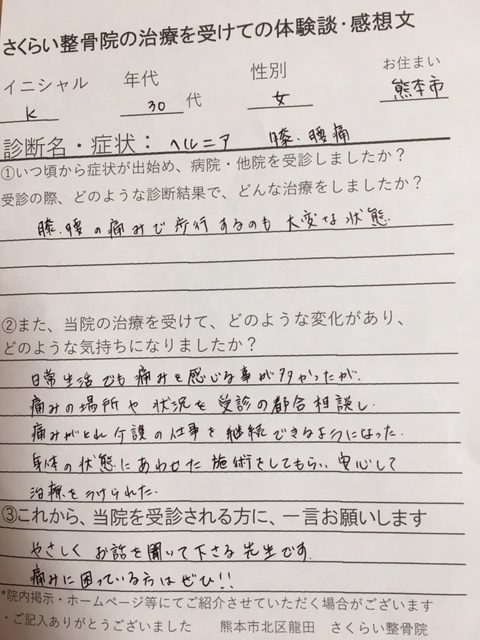 さくらい整骨院の治療を受けての体験談・感想文
イニシャル 年代 性別 お住まい
K 30代 女 熊本市
診断名・症状： ヘルニア 膝、腰痛
①いつ頃から症状が出始め、病院・他院を受診しましたか？
受診の際、どのような診断結果で、どんな治療をしましたか？
膝、腰の痛みで歩行するのも大変な状態
②また、当院の治療を受けて、どのような変化があり、
どのような気持ちになりましたか？
日常生活でも痛みを感じる事が多かったが、
痛みの場所や状況を受診の都合相談し、
痛みがとれ介護の仕事を継続できるようになった。
身体の状態にあわせた施術をしてもらい、安心して
治療をうけられた。
③これから、当院を受診される方に、一言お願いします
やさしくお話を聞いて下さる先生です。
痛みに困っている方はぜひ!!
*院内掲示・ホームページ等にてご紹介させていただく場合がございます
・ご記入ありがとうございました 熊本市北区龍田 さくらい整骨院